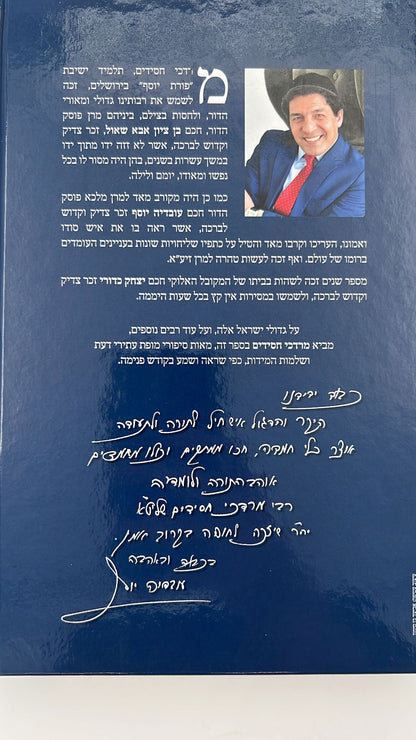 מרדכי חסידים, תלמיד ישיבת
"פורת יוסף" בירושלים, זכה
לשמש את רבותינו גדולי ומאורי
הדור, ולחסות בצילם, ביניהם מרן פוסק
הדור, חכם בן ציון אבא שאול, זכר צדיק
וקדוש לברכה, אשר לא זזה ידו מתוך ידו
במשך עשרות בשנים, בהן היה מסור לו בכל
נפשו ומאודו, יומם ולילה.
כמו כן היה מקורב מאד למרן מלכא פוסק
הדור חכם עובדיה יוסף זכר צדיק וקדוש
לברכה, אשר ראה בו את איש סודו
ואמונו, העריכו וקרבו מאד והטיל על כתפיו שליחויות שונות בעניינים העומדים
ברומו של עולם. ואף זכה לעשות טהרה למרן זיע"א.
מספר שנים זכה לשהות בביתו של המקובל האלוקי חכם יצחק כדורי זכר צדיק
וקדוש לברכה, ולשמשו במסירות אין קץ בכל שעות היממה.
על גדולי ישראל אלה, ועל עוד רבים נוספים,
מביא מרדכי חסידים בספר זה, מאות סיפורי מופת עתירי דעת
ושלמות המידות, כפי שראה ושמע בקודש פנימה.
כבוד ידידנו
היקר והדגול איש חיל לתורה ולתעודה
אוצר כלי חמדה, חכו ממתקים וכולו מחמדים
אוהב התורה ולומדיה
רבי מרדכי חסידים שליט"א
יה"ר שיזכה לחופה בקרוב אמן.
בכבוד ובאהבה
עובדיה יוסף